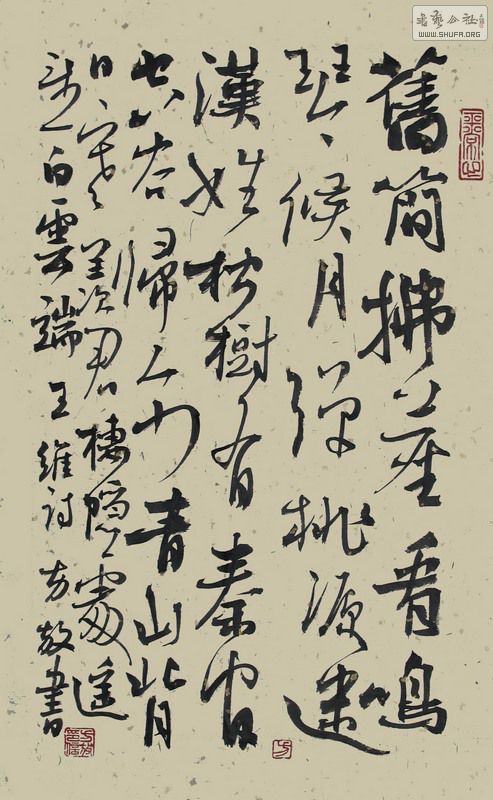 書藝公社
WWW.SHUFA.ORG
舊簡拂塵看鳴
琴候月彈桃源迷
漢姓松樹有秦官
空谷歸人少青山背
日寒羨君棲隱處遥
望白雲端王維詩方放書